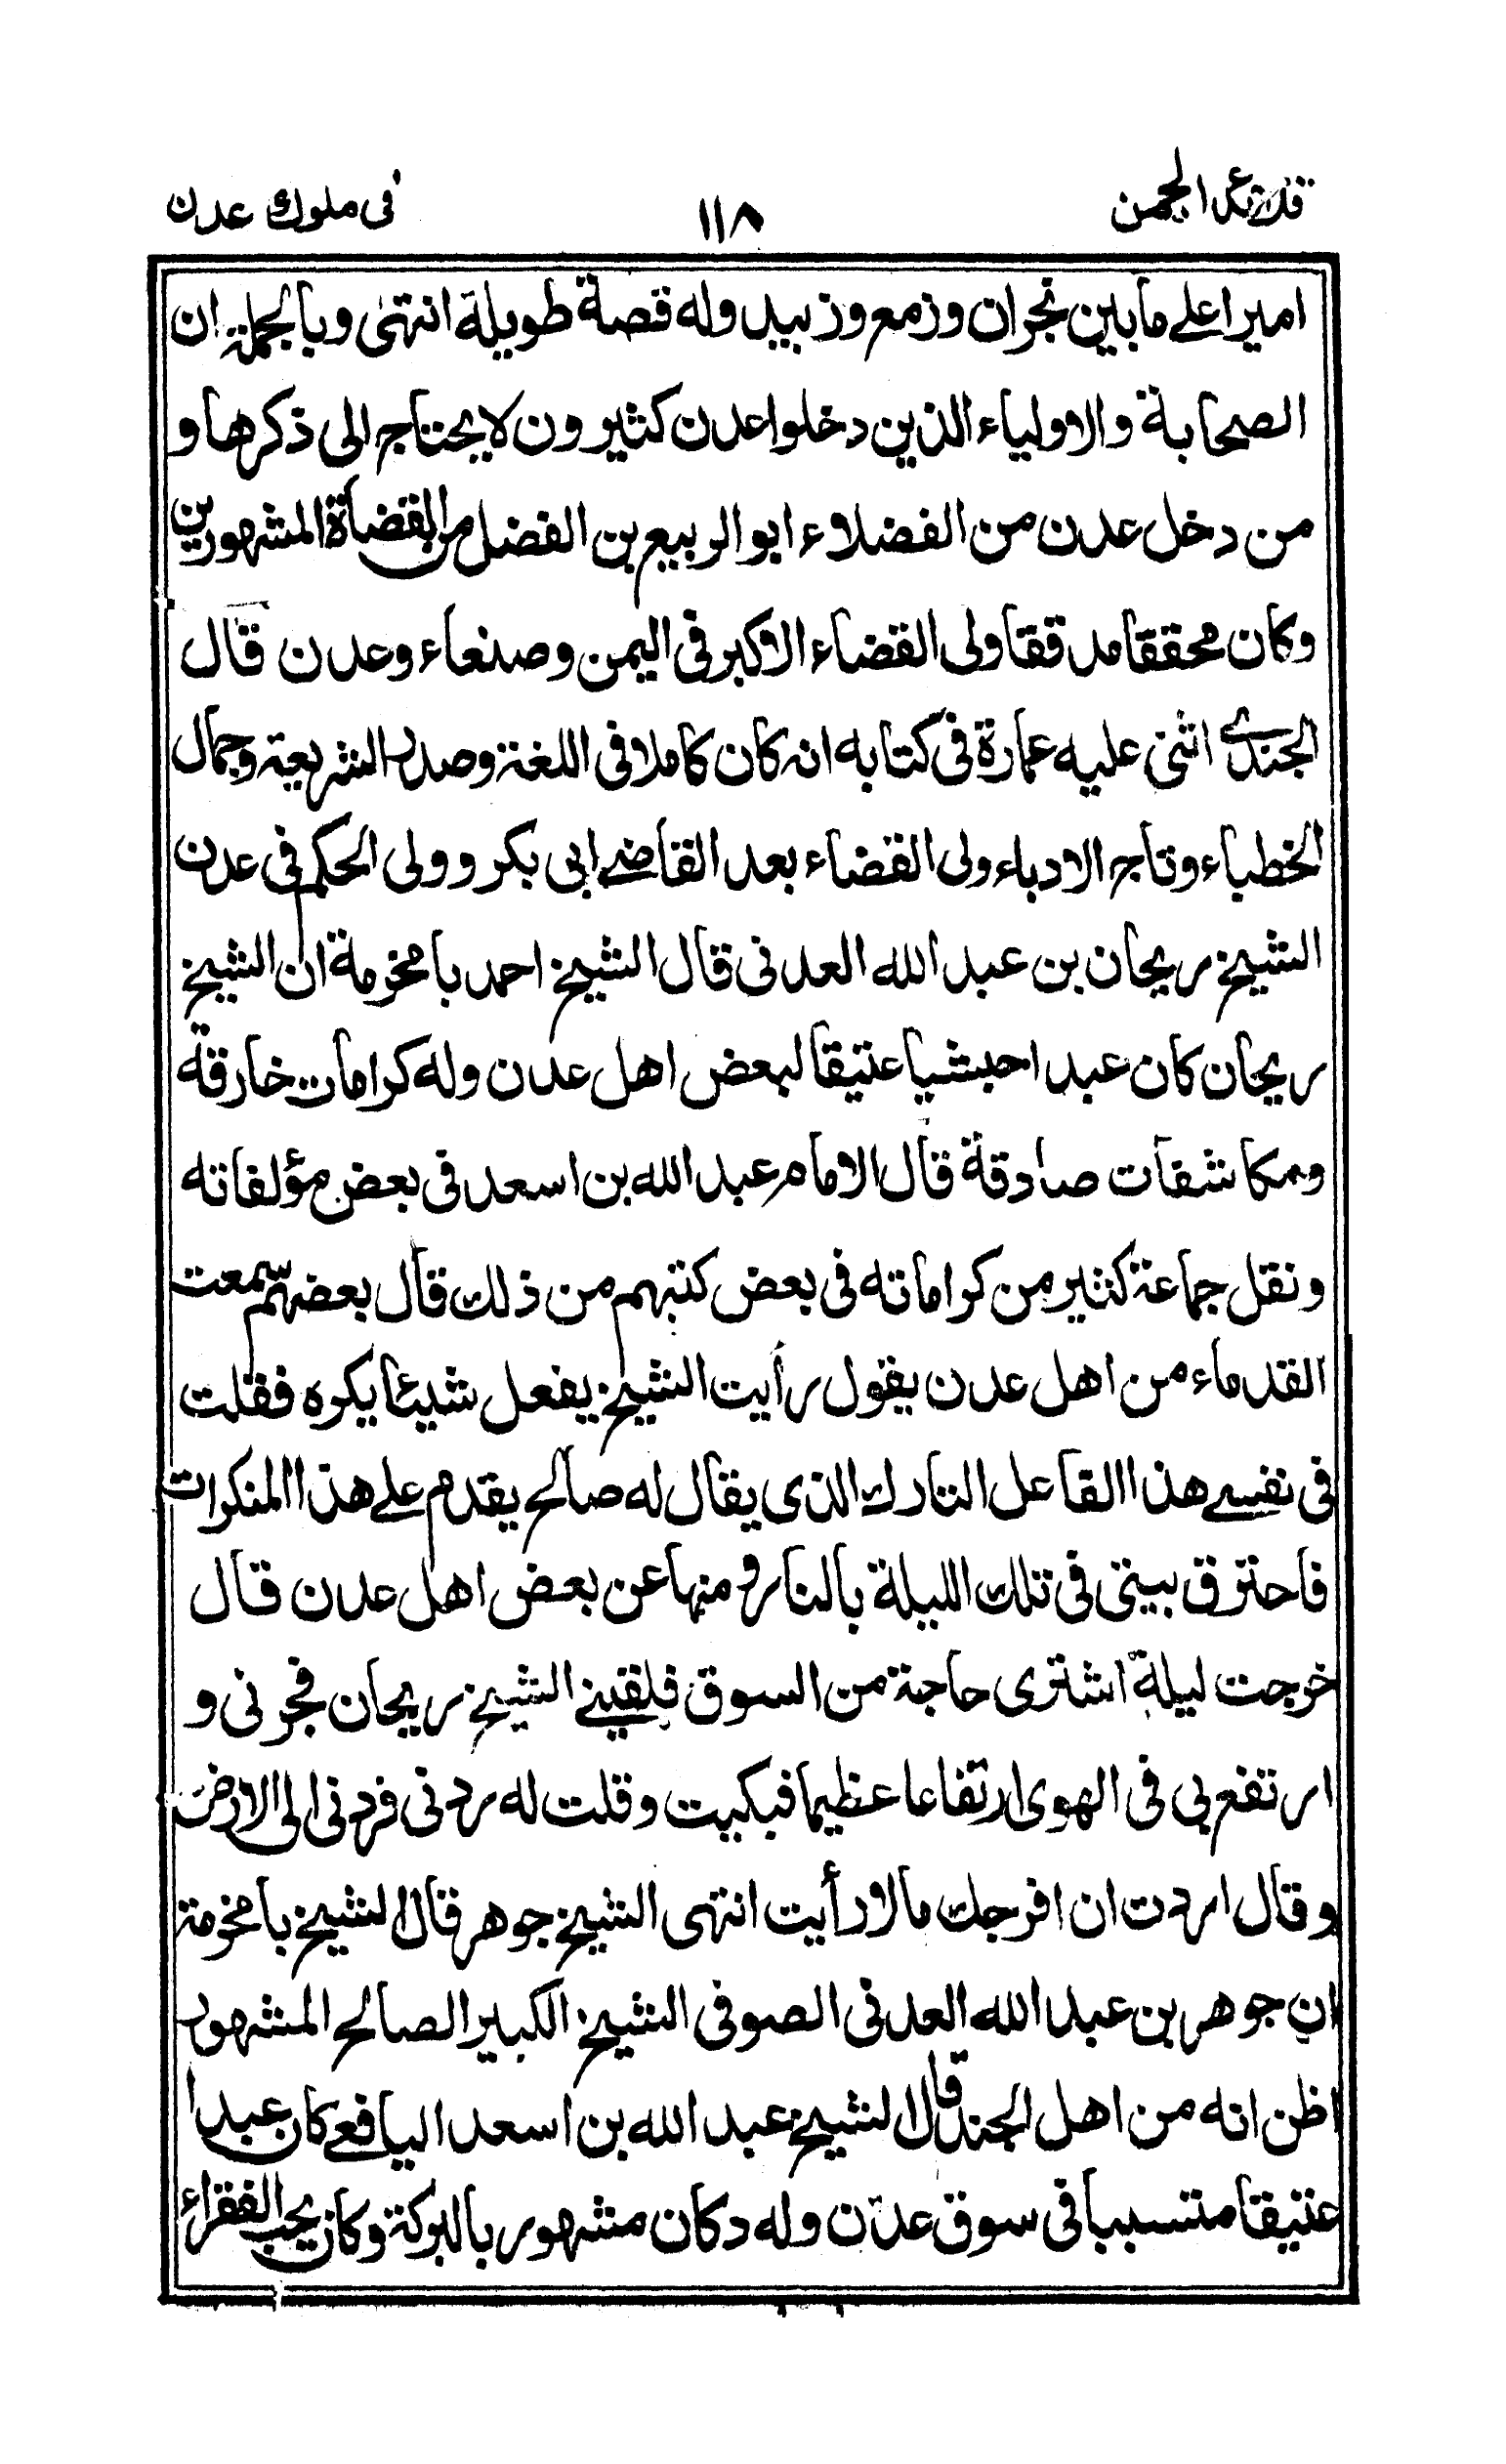 قلائد الجمن ١١٨ في ملوك عدن
اميرا على ما بين نجران وزمع وزبيد وله قصة طويلة انتهى وبالجملة ان
الصحابة والاولياء الذين دخلوا عدن كثيرون لا يحتاج الى ذكرها و
من دخل عدن من الفضلاء ابو الربيع بن الفضل من القضاة المشهورين
وكان محققا مدققا ولى القضاء الاكبر في اليمن وصنعاء وعدن قال
الجندي اثنى عليه عمارة في كتابه انه كان كاملا في اللغة وصدر الشريعة وجمال
الخطباء وتاج الادباء ولى القضاء بعد القاضي ابى بكر وولى الحكم في عدن
الشيخ ريحان بن عبد الله العدنى قال الشيخ احمد بامخرمة ان الشيخ
ريحان كان عبدا حبشيا عتيقا لبعض اهل عدن وله كرامات خارقة
ومكاشفات صادقة قال الامام عبد الله بن اسعد في بعض مؤلفاته
ونقل جماعة كثير من كراماته في بعض كتبهم من ذلك قال بعضهم سمعت
القدماء من اهل عدن يقول رأيت الشيخ يفعل شيئا يكره فقلت
في نفسي هذا الفاعل التارك الذى يقال له صالح يقدم على هذا المنكرات
فاحترق بيتى في تلك الليلة بالنار ومنها عن بعض اهل عدن قال
خرجت ليلة اشترى حاجة من السوق فلقيني الشيخ ريحان فجرنى و
ارتفع بي في الهوى ارتفاعا عظيما فبكيت وقلت له ردنى فردنى الى الارض
وقال اردت ان افرجك مالا رأيت انتهى الشيخ جوهر قال الشيخ بامخرمة
ان جوهر بن عبد الله العدنى الصوفى الشيخ الكبير الصالح المشهور
اظن انه من اهل الجند قال الشيخ عبد الله بن اسعد اليافعي كان عبدا
عتيقا متسببا في سوق عدن وله دكان مشهور بالبركة وكان يحب الفقراء